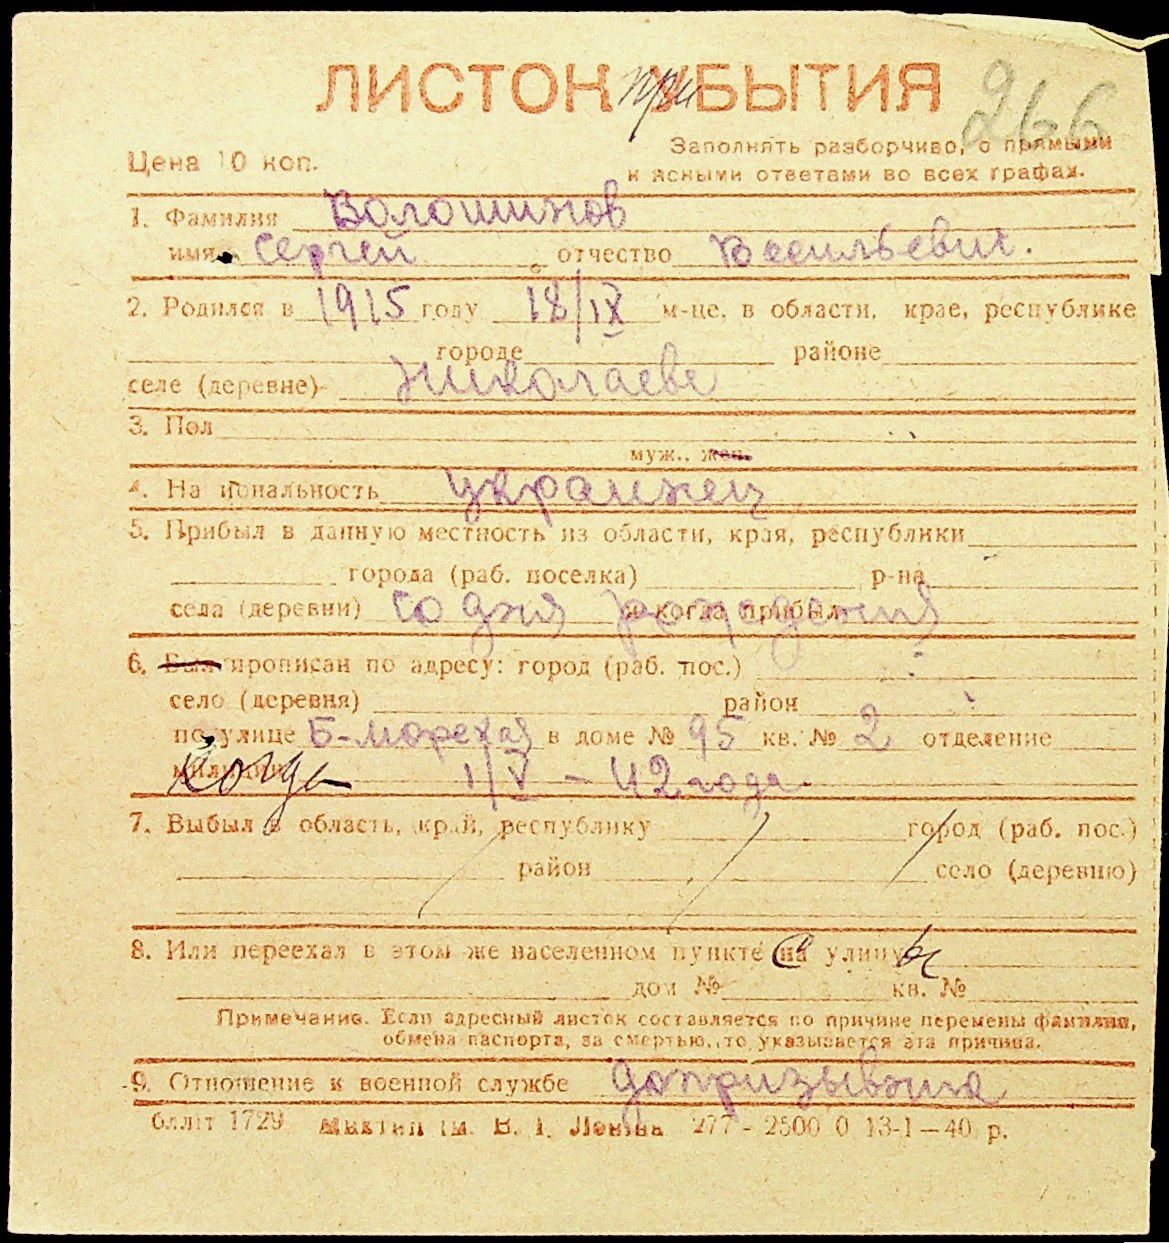 ЛИСТОК при УБЫТИЯ
266
Цена 10 коп.
Заполнять разборчиво, с прямыми
и ясными ответами во всех графах.
1. Фамилия Волошинов
имя Сергей отчество Васильевич.
2. Родился в 1915 году 18/IX м-це, в области, крае, республике
городе районе
селе (деревне) Николаеве
3. Пол
муж., жен.
4. Национальность украинец
5. Прибыл в данную местность из области, края, республики
города (раб. поселка) р-на
села (деревни) со дня рождения и когда прибыл
6. Был прописан по адресу: город (раб. пос.)
село (деревня) район
по улице Б-морская в доме № 95 кв. № 2 отделение
милиции когда 1/V - 42 года
7. Выбыл в область, край, республику город (раб. пос.)
район село (деревню)
8. Или переехал в этом же населенном пункте на улицу
дом № кв. №
Примечание. Если адресный листок составляется по причине перемены фамилии,
обмена паспорта, за смертью, то указывается эта причина.
9. Отношение к военной службе
1729 ім. В. І. Леніна 277 - 2500 0 13-1—40 р.